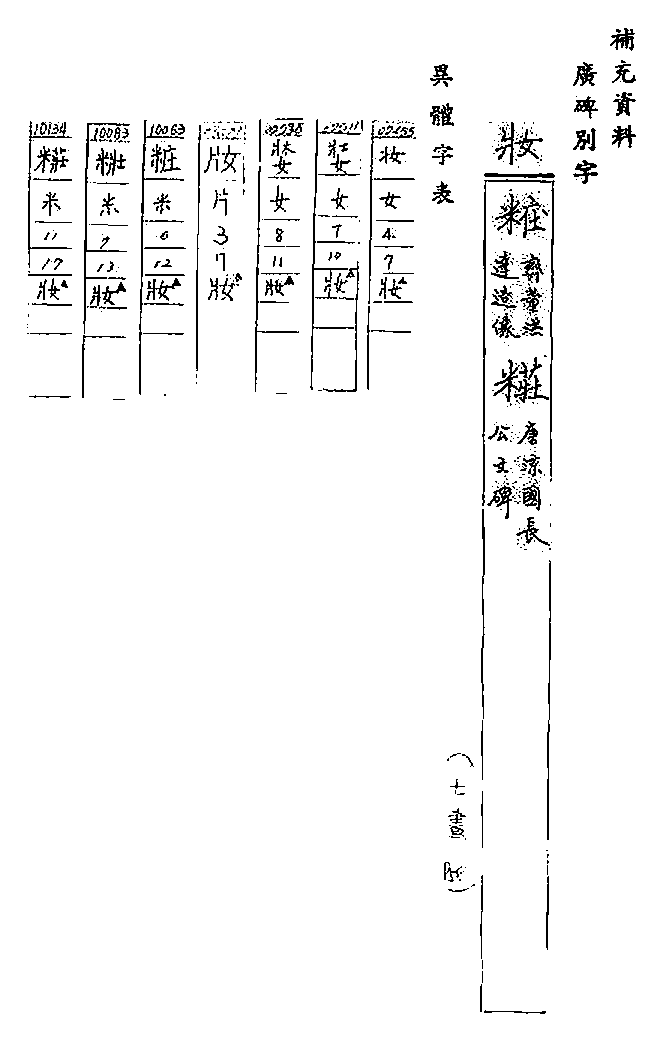 補充資料
廣碑別字
妝
糚
齊董洪
達造像
糚
唐涼國長
公主碑
(七畫
異體字表
妆
女
4
7
妝▲
女
7
10
妝▲
女
8
11
妝▲
片
3
7
妝▲
10063
粧
米
6
12
妝▲
10083
米
7
13
妝▲
10134
糚
米
11
17
妝▲